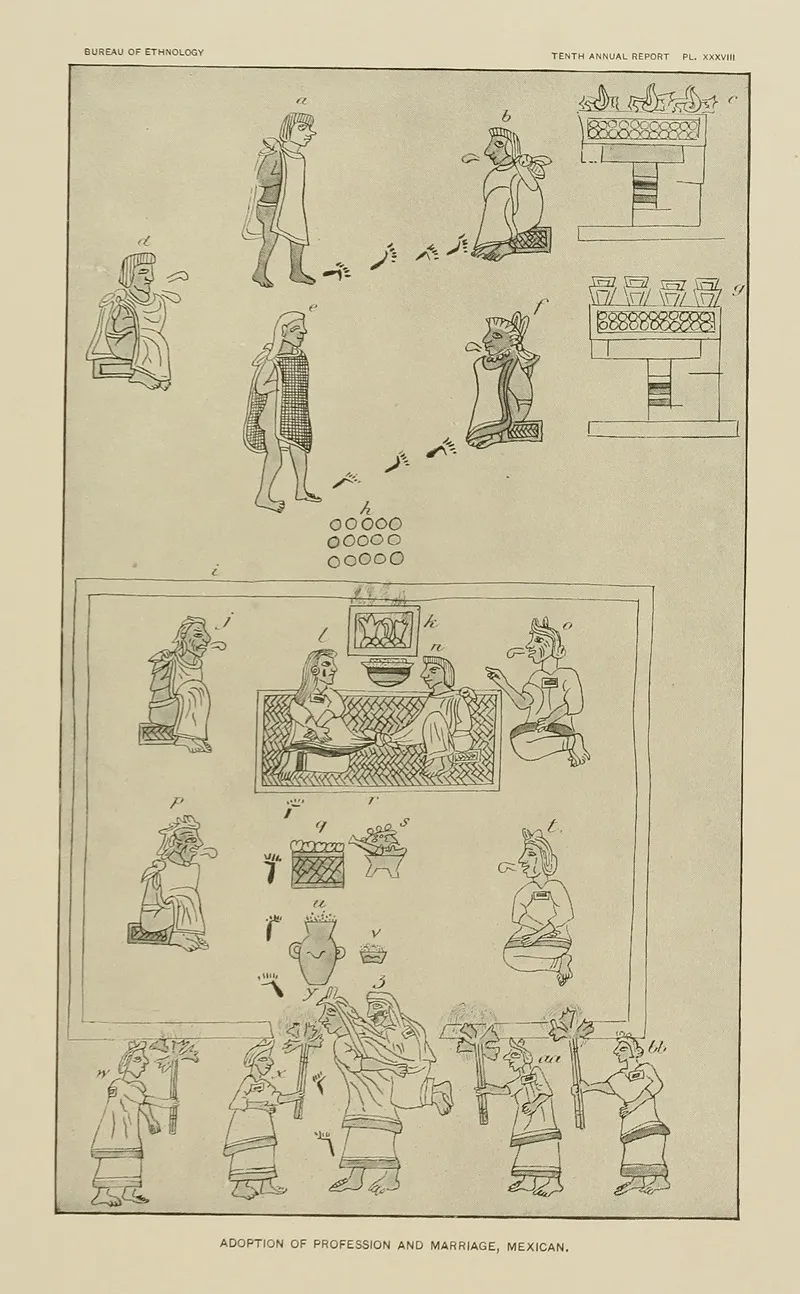 BUREAU OF ETHNOLOGY
TENTH ANNUAL REPORT PL. XXXVIII
a
b
c
d
e
f
g
h
i
j
k
l
n
o
p
q
r
s
t.
u
v
w
x
y
z
aa
bb
ADOPTION OF PROFESSION AND MARRIAGE, MEXICAN.